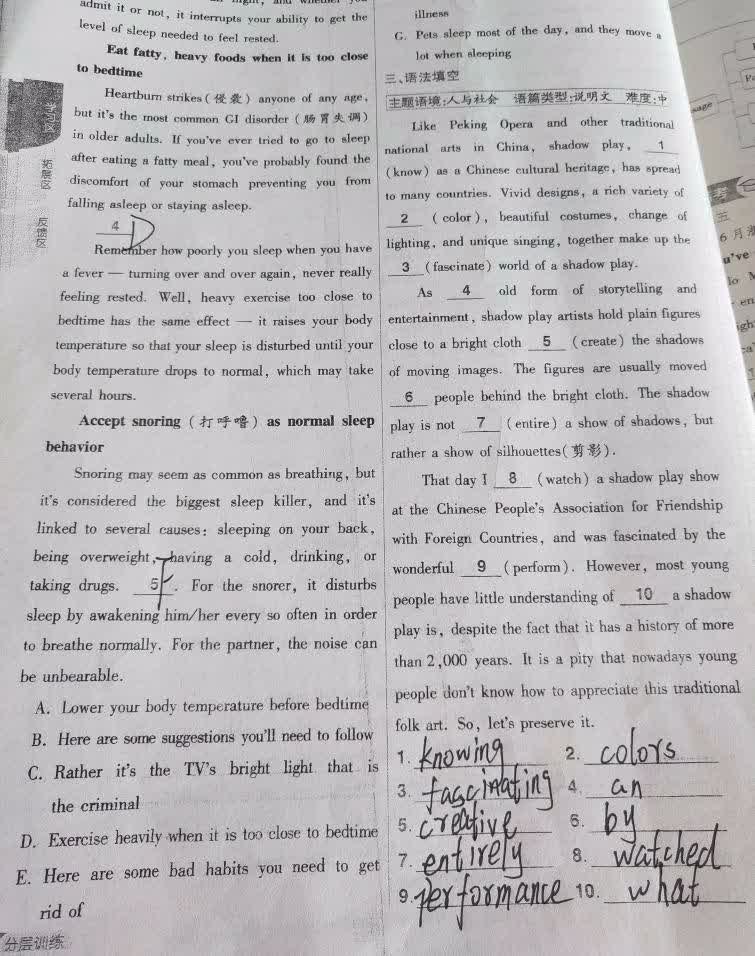 admit it or not, it interrupts your ability to get the
level of sleep needed to feel rested.
Eat fatty, heavy foods when it is too close
to bedtime
Heartburn strikes (侵袭) anyone of any age,
but it's the most common GI disorder (肠胃失调)
in older adults. If you've ever tried to go to sleep
after eating a fatty meal, you've probably found the
discomfort of your stomach preventing you from
falling asleep or staying asleep.
4 D
Remember how poorly you sleep when you have
a fever — turning over and over again, never really
feeling rested. Well, heavy exercise too close to
bedtime has the same effect — it raises your body
temperature so that your sleep is disturbed until your
body temperature drops to normal, which may take
several hours.
Accept snoring (打呼噜) as normal sleep
behavior
Snoring may seem as common as breathing, but
it's considered the biggest sleep killer, and it's
linked to several causes: sleeping on your back,
being overweight, having a cold, drinking, or
taking drugs. 5 F. For the snorer, it disturbs
sleep by awakening him/her every so often in order
to breathe normally. For the partner, the noise can
be unbearable.
A. Lower your body temperature before bedtime
B. Here are some suggestions you'll need to follow
C. Rather it's the TV's bright light that is
the criminal
D. Exercise heavily when it is too close to bedtime
E. Here are some bad habits you need to get
rid of
分层训练
拓展区
反馈区
illness
G. Pets sleep most of the day, and they move a
lot when sleeping
三、语法填空
主题语境:人与社会 语篇类型:说明文 难度:中
Like Peking Opera and other traditional
national arts in China, shadow play, 1
(know) as a Chinese cultural heritage, has spread
to many countries. Vivid designs, a rich variety of
2 (color), beautiful costumes, change of
lighting, and unique singing, together make up the
3 (fascinate) world of a shadow play.
As 4 old form of storytelling and
entertainment, shadow play artists hold plain figures
close to a bright cloth 5 (create) the shadows
of moving images. The figures are usually moved
6 people behind the bright cloth. The shadow
play is not 7 (entire) a show of shadows, but
rather a show of silhouettes(剪影).
That day I 8 (watch) a shadow play show
at the Chinese People's Association for Friendship
with Foreign Countries, and was fascinated by the
wonderful 9 (perform). However, most young
people have little understanding of 10 a shadow
play is, despite the fact that it has a history of more
than 2,000 years. It is a pity that nowadays young
people don't know how to appreciate this traditional
folk art. So, let's preserve it.
1. knowing 2. colors
3. fascinating 4. an
5. creative 6. by
7. entirely 8. watched
9. performance 10. what
考
五
6月
u've